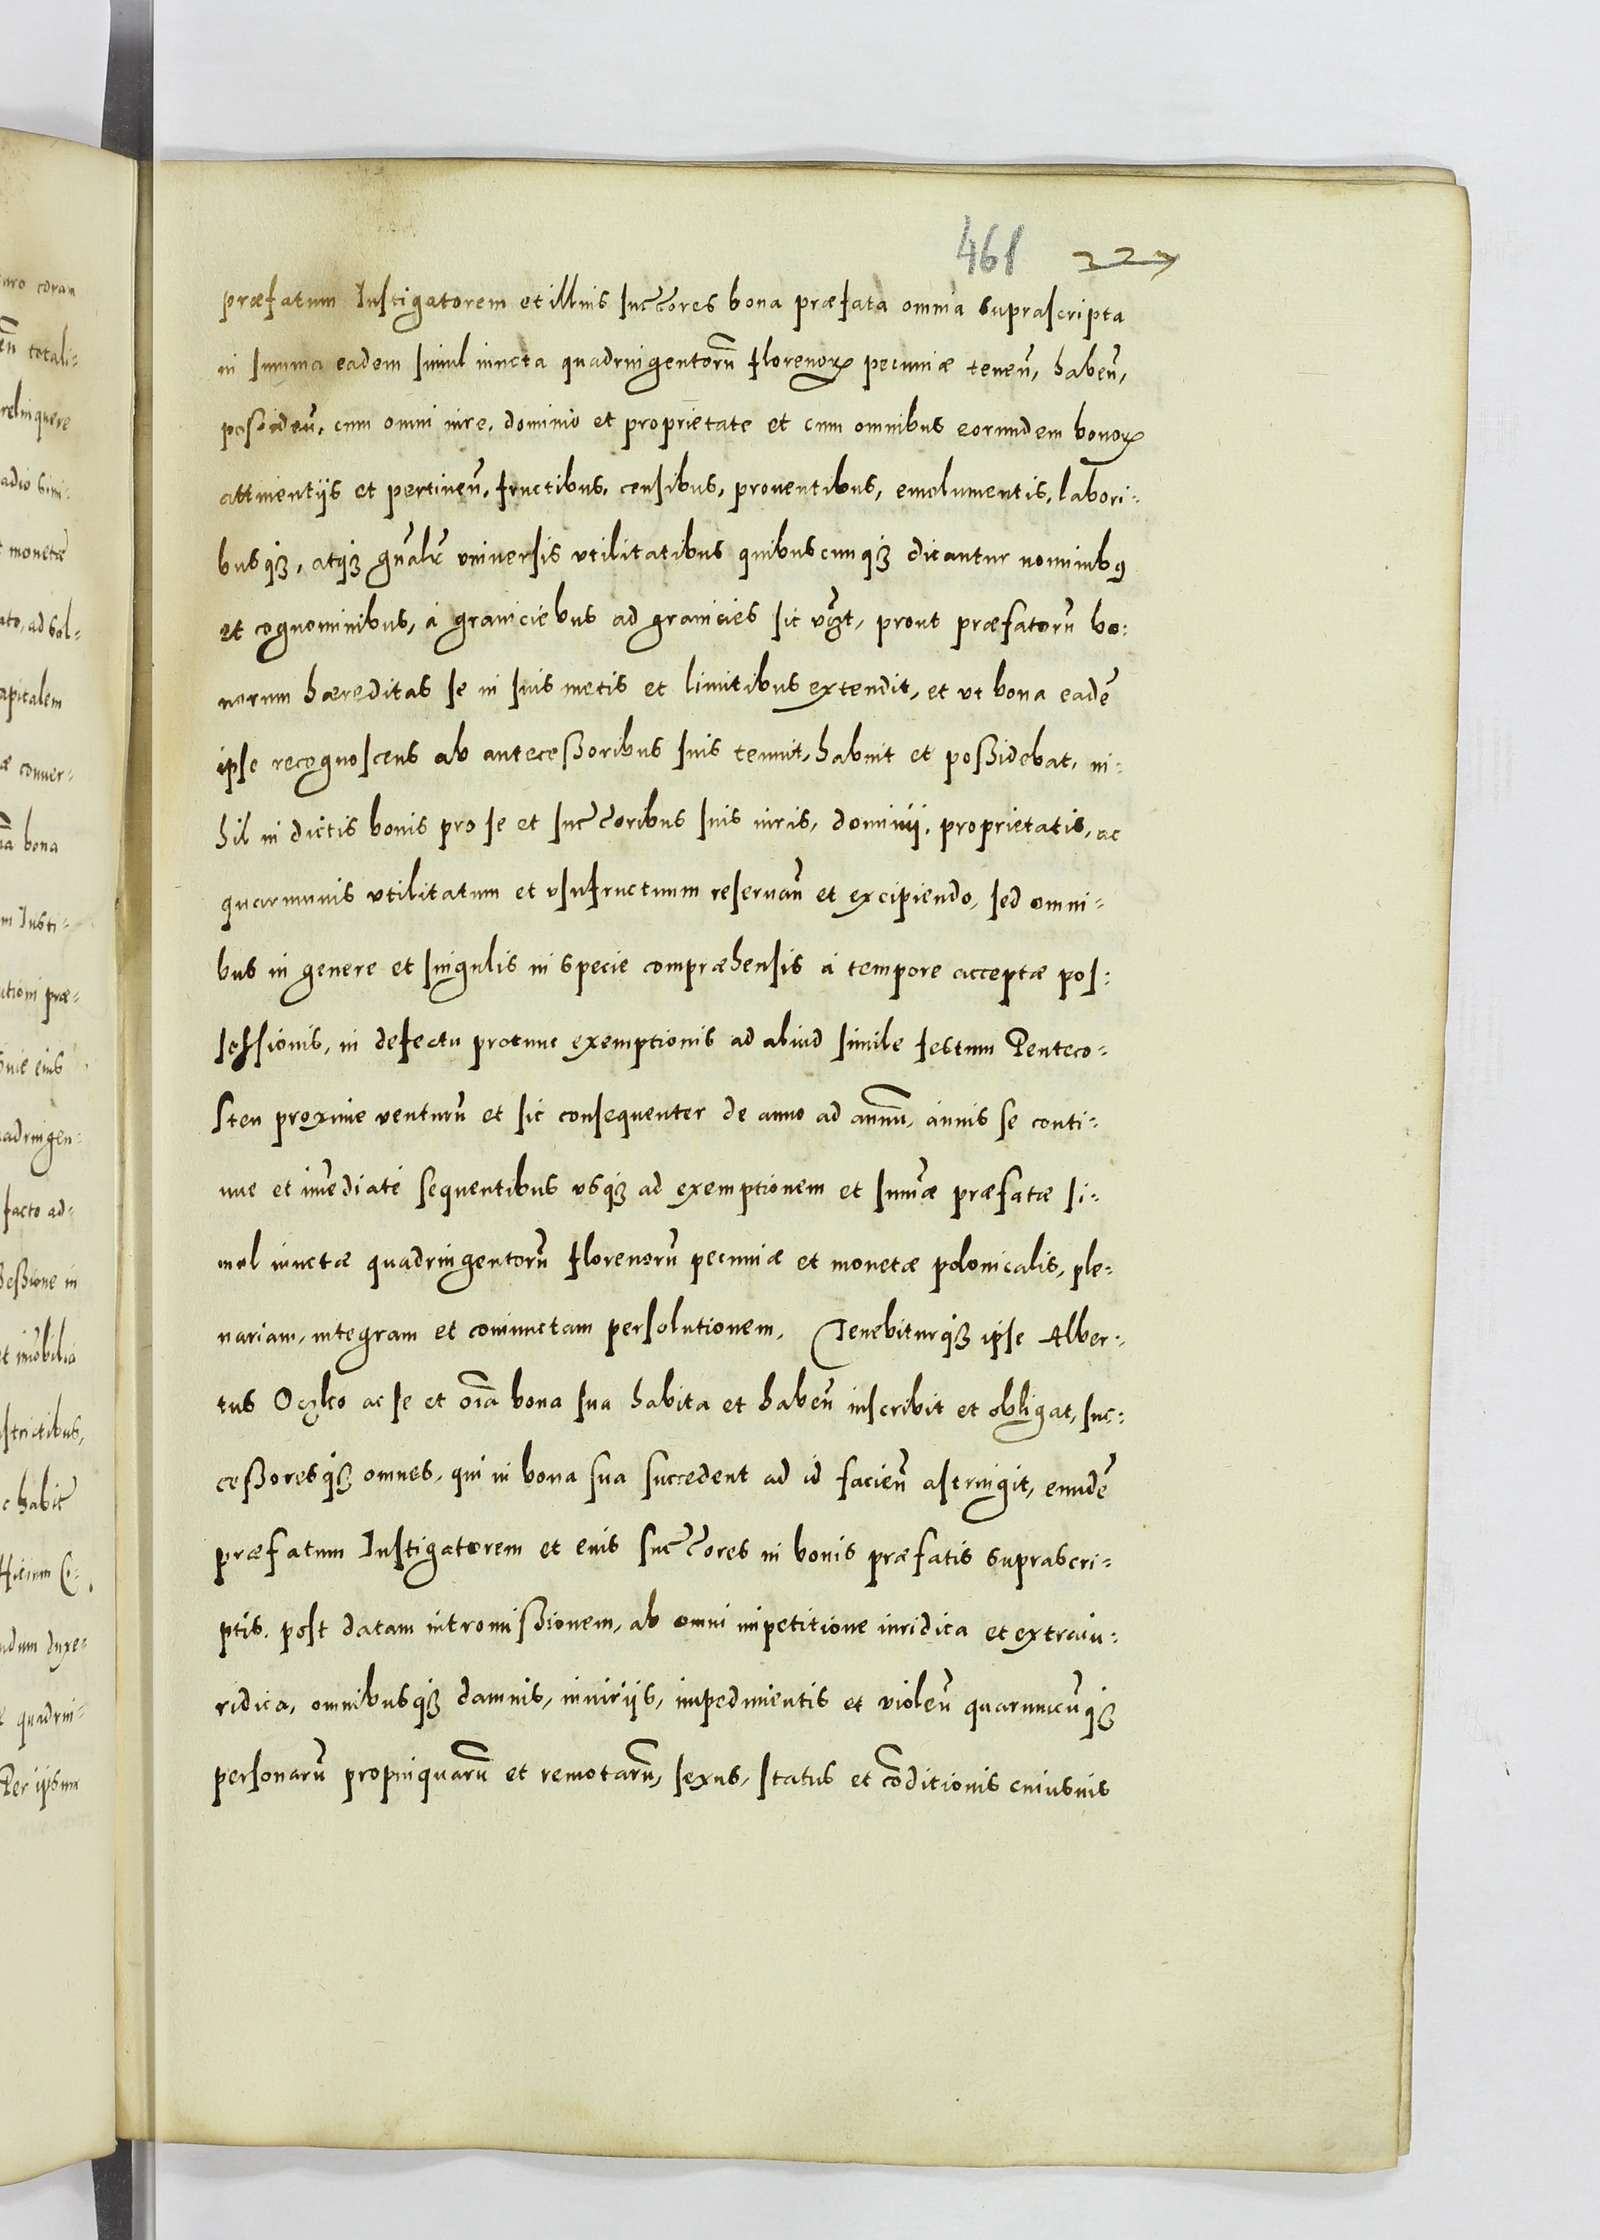 461 327
præfatum Instigatorem et illius succ̃ores bona præfata omnia suprascripta
in summa eadem simul iuncta quadringentorũ florenorꝝ pecuniæ teneñ, habeñ,
possideñ, cum omni iure, dominio et proprietate et cum omnibus eorundem bonorꝝ
attinentijs et pertineñ, fructibus, censibus, prouentibus, emolumentis, labori:
busqꝫ, atqꝫ gñalr̃ vniuersis vtilitatibus quibuscunqꝫ dicantur nominibꝰ
et cognominibus, à graniciebus ad granicies sic vt̃, prout præfatorũ bo:
norum hæreditas se in suis metis et limitibus extendit, et vt bona eadẽ
ipse recognoscens ab antecessoribus suis tenuit, habuit et possidebat, ni:
hil in dictis bonis pro se et succ̃oribus suis iuris, dominij, proprietatis, ac
quarumuis vtilitatum et vsufructuum reseruañ et excipiendo, sed omni:
bus in genere et singulis in specie compræhensis à tempore acceptæ pos:
sessionis, in defectu protunc exemptionis ad aliud simile festum Penteco:
sten proxime venturũ et sic consequenter de anno ad annũ, annis se conti:
nue et im̃ediatè sequentibus vsqꝫ ad exemptionem et sum̃æ præfatæ si:
mul iunctæ quadringentorũ florenorũ pecuniæ et monetæ polonicalis, ple:
nariam, integram et coniunctam persolutionem. Tenebiturqꝫ ipse Alber:
tus Oczko ac se et oĩa bona sua habita et habeñ inscribit et obligat, suc:
cessoresqꝫ omnes, qui in bona sua succedent ad id facieñ astringit, eundẽ
præfatum Instigatorem et eius succ̃ores in bonis præfatis suprascri:
ptis, post datam intromissionem, ab omni impetitione iuridica et extraiu:
ridica, omnibusqꝫ damnis, iniurijs, impedimentis et violeñ quarumcũqꝫ
personarũ propinquarũ et remotarũ, sexus, status et cõditionis cuiusuis